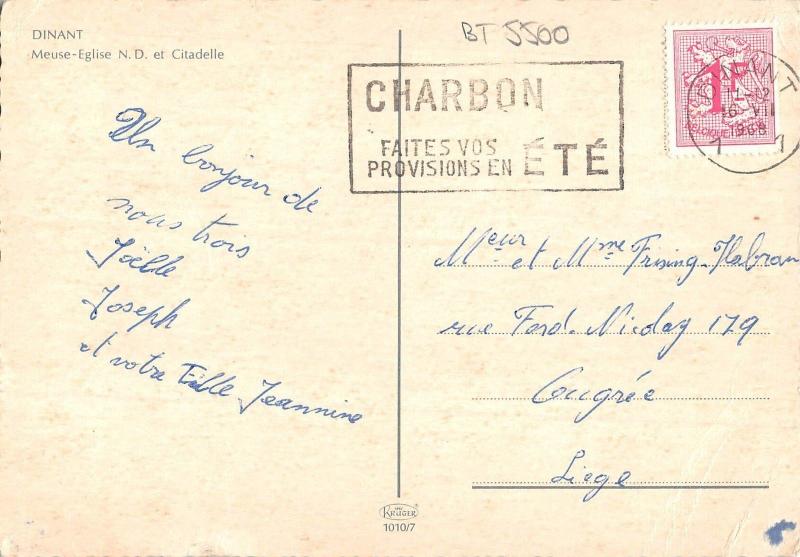 DINANT
Meuse-Eglise N.D. et Citadelle
BT 5500
CHARBON
FAITES VOS
PROVISIONS EN ÉTÉ
1F
BELGIQUE
DINANT
11-12
16 VII
1968
1 1
Un bonjour de
nous trois
Joëlle
Joseph
et votre Fille Jeannine
Meur et Mme Frising-Habran
rue Ferd. Nicolay 179
Ougrée
Liege
KRÜGER
1010/7